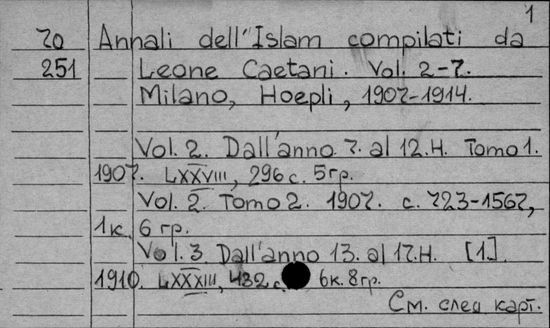 1
20 Annali dell'Islam compilati da
251 Leone Caetani. Vol. 2-7.
Milano, Hoepli, 1907-1914.
Vol. 2. Dall'anno 7. al 12.H. Tomo 1.
1907. LXXVIII, 296 с. 5 гр.
Vol. 2. Tomo 2. 1907. с. 723-1567,
1 к. 6 гр.
Vol. 3 Dall'anno 13. al 17.H. [1].
1910. LXXXIII, 432 с. 6 к. 8 гр.
См. след карт.